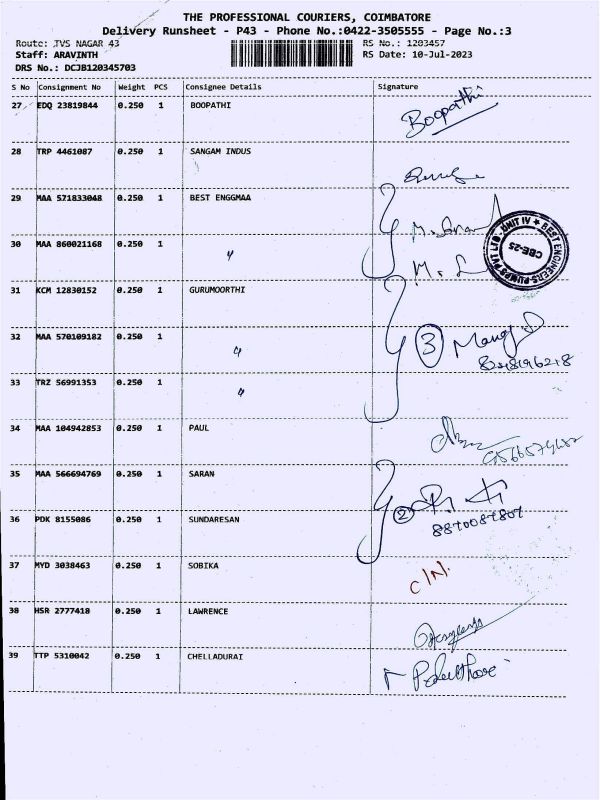 THE PROFESSIONAL COURIERS, COIMBATORE
Delivery Runsheet - P43 - Phone No.:0422-3505555 - Page No.:3
Route: TVS NAGAR 43 RS No.: 1203457
Staff: ARAVINTH RS Date: 10-Jul-2023
DRS No.: DCJB120345703
S No Consignment No Weight PCS Consignee Details Signature
27 EDQ 23819844 0.250 1 BOOPATHI Boopathi
28 TRP 4461087 0.250 1 SANGAM INDUS
29 MAA 571833048 0.250 1 BEST ENGGMAA M.
BEST ENGINEERS PUMPS PVT LTD - UNIT IV
CBE-25
30 MAA 860021168 0.250 1 " M.
31 KCM 12830152 0.250 1 GURUMOORTHI
32 MAA 570109182 0.250 1 " 3
33 TRZ 56991353 0.250 1 "
34 MAA 104942853 0.250 1 PAUL
35 MAA 566694769 0.250 1 SARAN
36 PDK 8155086 0.250 1 SUNDARESAN 2
8870087807
37 MYD 3038463 0.250 1 SOBIKA C/N.
38 HSR 2777418 0.250 1 LAWRENCE
39 TTP 5310042 0.250 1 CHELLADURAI